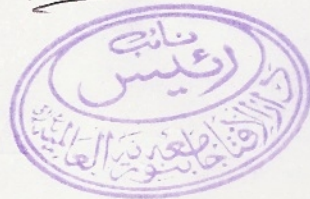 نائب
رئيس
دار الافتا جامعه بنوريه العالميه